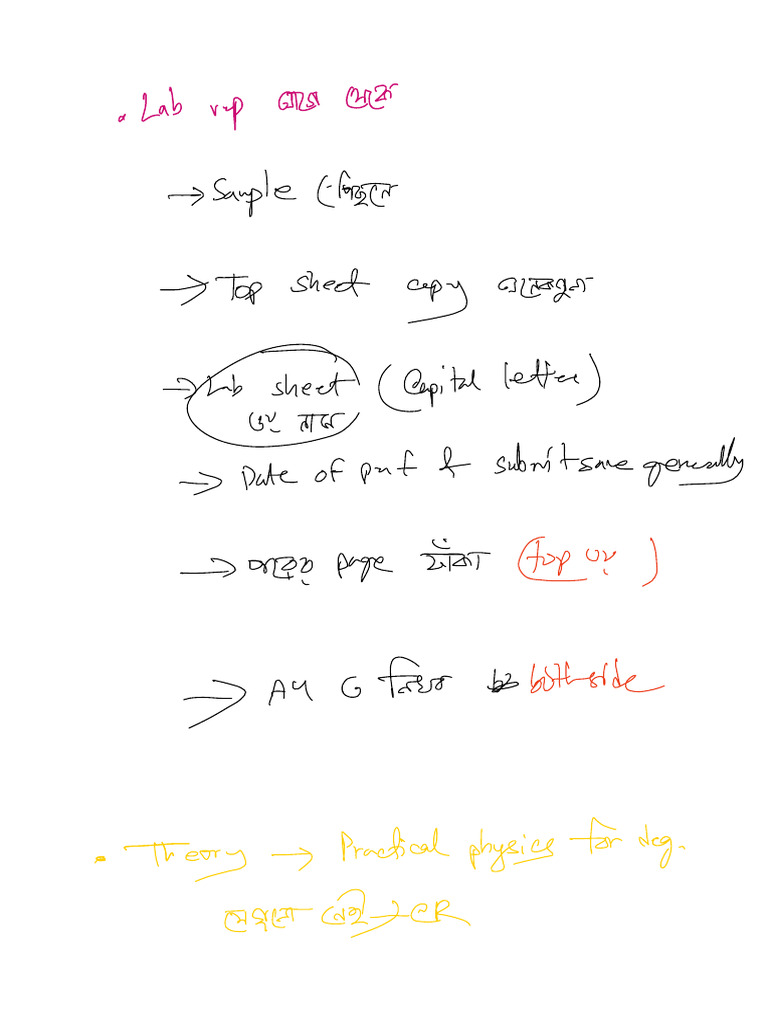 • Lab rep আগে থেকে
→ Sample (পিছনে
→ Top sheet copy অনেকগুলা
→ Lab sheet (Capital letter)
এর মানে
→ Date of & submit same generally
→ পরের page ফাঁকা (top এর)
→ A4 এ লিখব both side
• Theory → Practical physics for deg.
যেগুলো নেই → CR